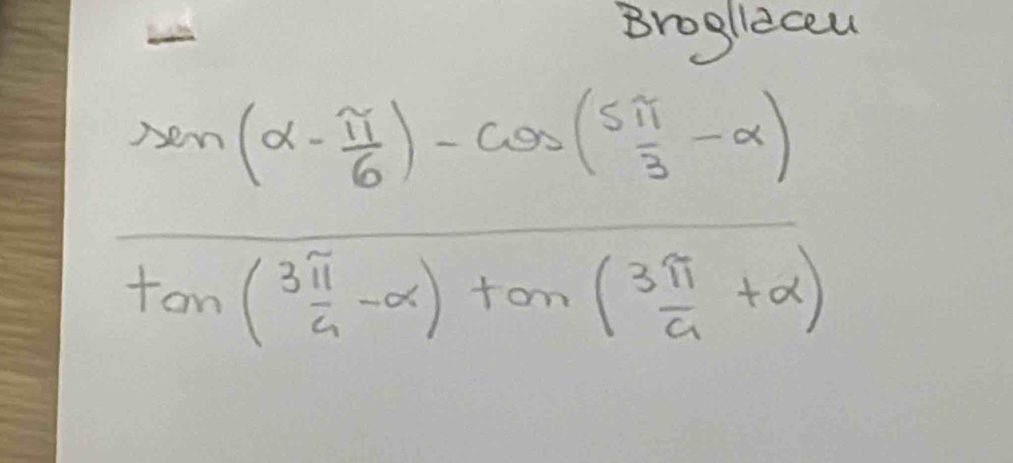 Brogliaccu
sen(α - π/6) - cos(5π/3 - α)
tan(3π/4 - α) tan(3π/4 + α)